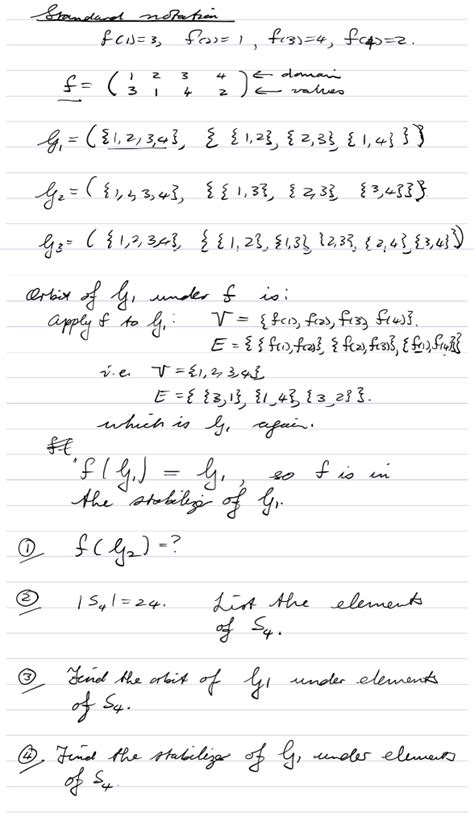 Standard notation
f(1)=3, f(2)=1, f(3)=4, f(4)=2.
f = ( 1 2 3 4 ) ← domain
( 3 1 4 2 ) ← values
G₁ = ({1,2,3,4}, { {1,2}, {2,3}, {1,4} })
G₂ = ({1,2,3,4}, {{1,3}, {2,3}, {3,4}})
G₃ = ({1,2,3,4}, {{1,2}, {1,3}, {2,3}, {2,4}, {3,4}})
Orbit of G₁ under f is:
apply f to G₁: V = {f(1), f(2), f(3), f(4)}.
E = {{f(1), f(2)}, {f(2), f(3)}, {f(1), f(4)}}
i.e. V = {1,2,3,4}
E = { {3,1}, {1,4}, {3,2}}.
which is G₁ again.
f(G₁) = G₁, so f is in
the stabilizer of G₁.
① f(G₂) = ?
② |S₄| = 24. List the elements
of S₄.
③ Find the orbit of G₁ under elements
of S₄.
④ Find the stabilizer of G₁ under elements
of S₄